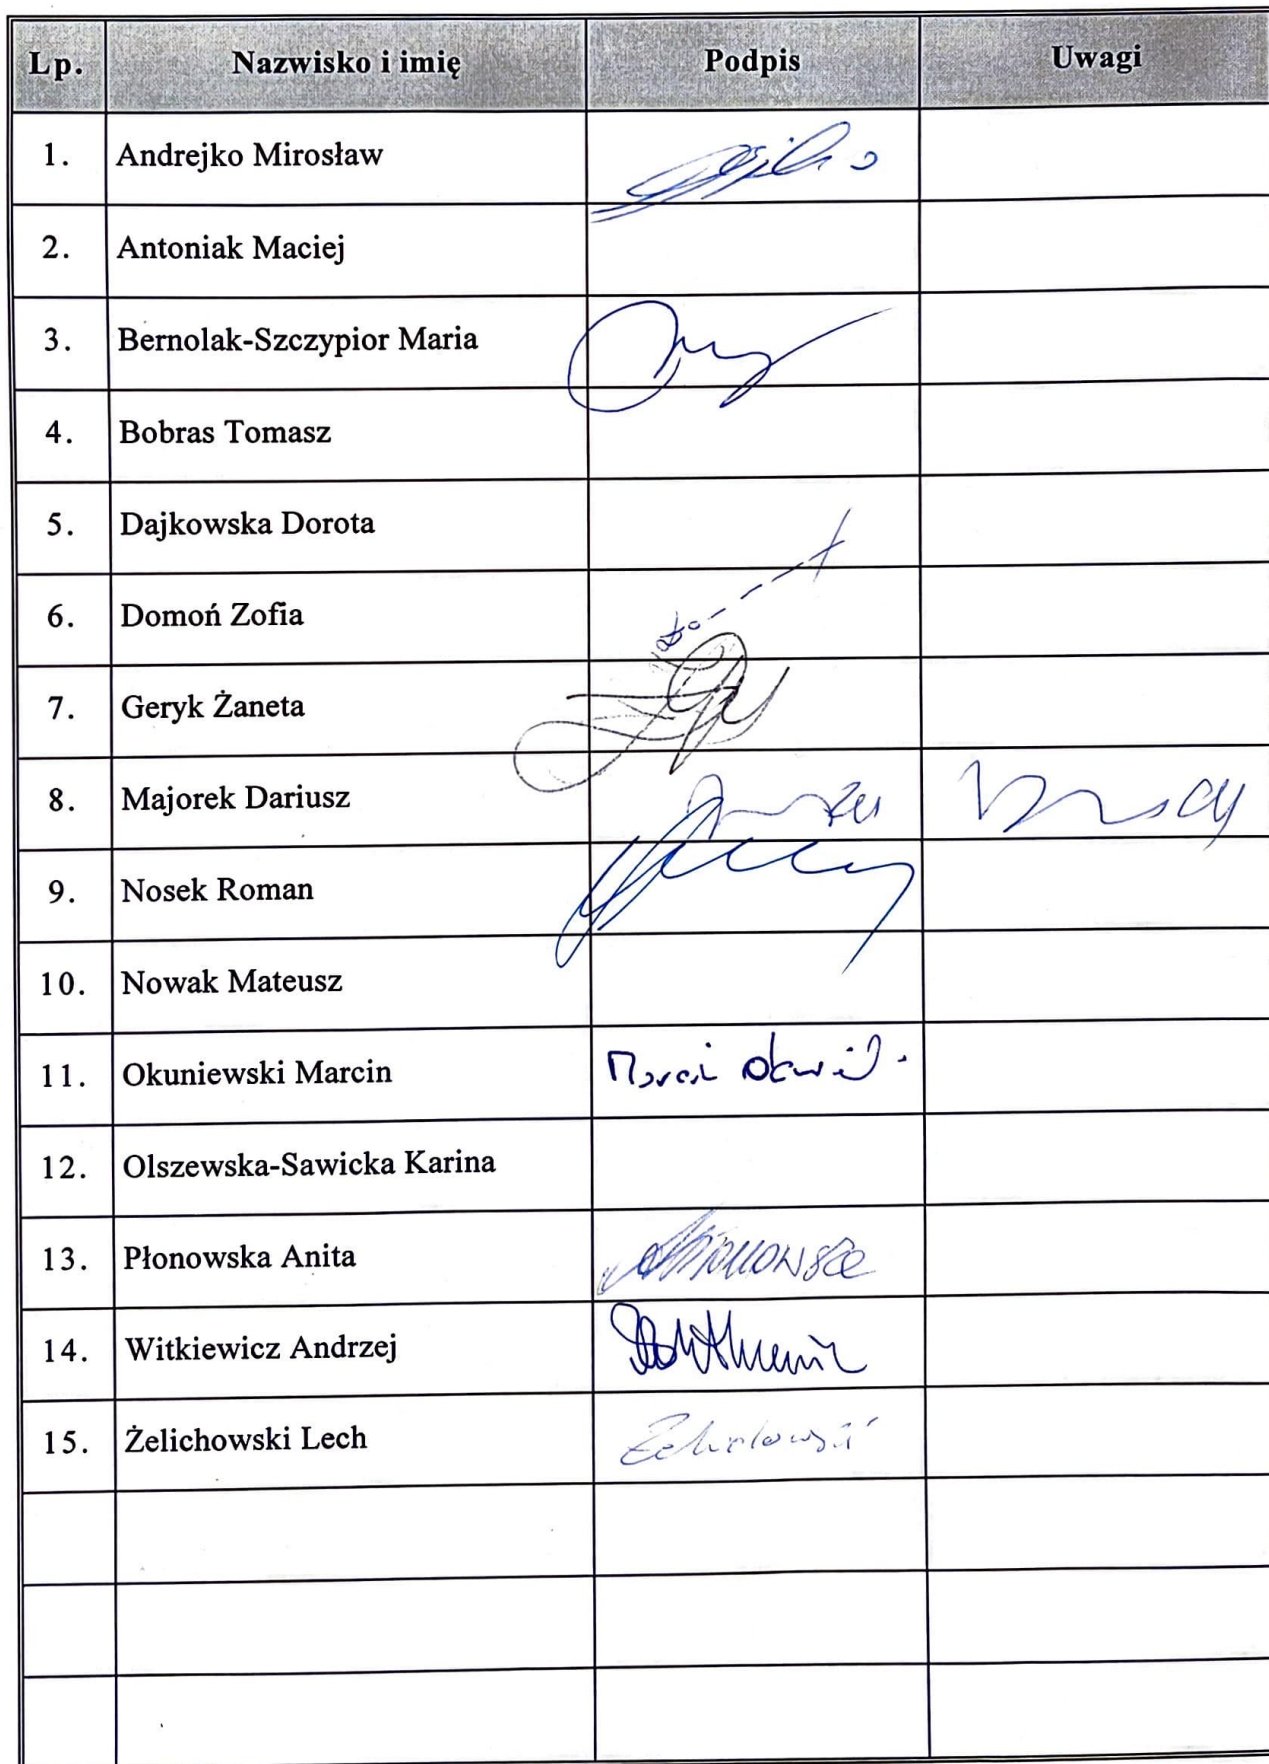 Lp. Nazwisko i imię Podpis Uwagi
1. Andrejko Mirosław
2. Antoniak Maciej
3. Bernolak-Szczypior Maria
4. Bobras Tomasz
5. Dajkowska Dorota
6. Domoń Zofia
7. Geryk Żaneta
8. Majorek Dariusz
9. Nosek Roman
10. Nowak Mateusz
11. Okuniewski Marcin
12. Olszewska-Sawicka Karina
13. Płonowska Anita
14. Witkiewicz Andrzej
15. Żelichowski Lech